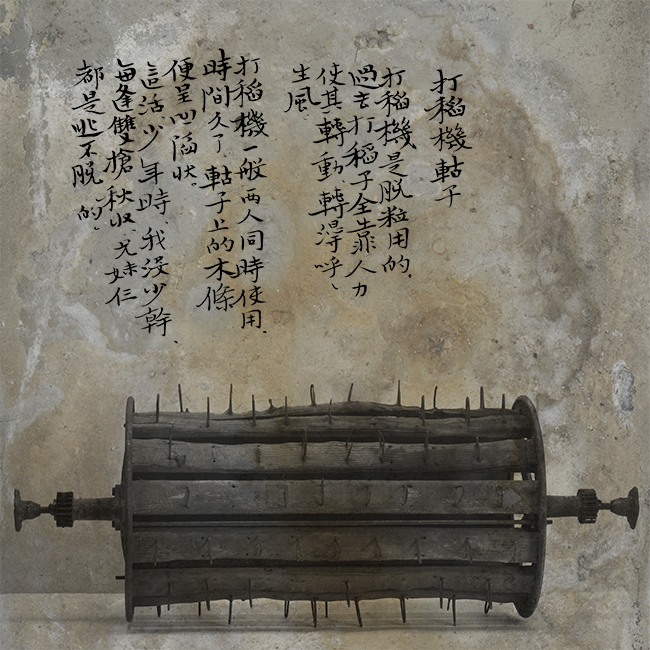 打稻機軲子
打稻機是脫粒用的.
過去打稻子全靠人力
使其轉動轉得呼、
生風
打稻機一般兩人同時使用.
時間久了軲子上的木條
便呈凹陷狀。
這活少年時、我沒少幹、
每逢雙槍秋收、兄妹仨
都是逃不脫的。